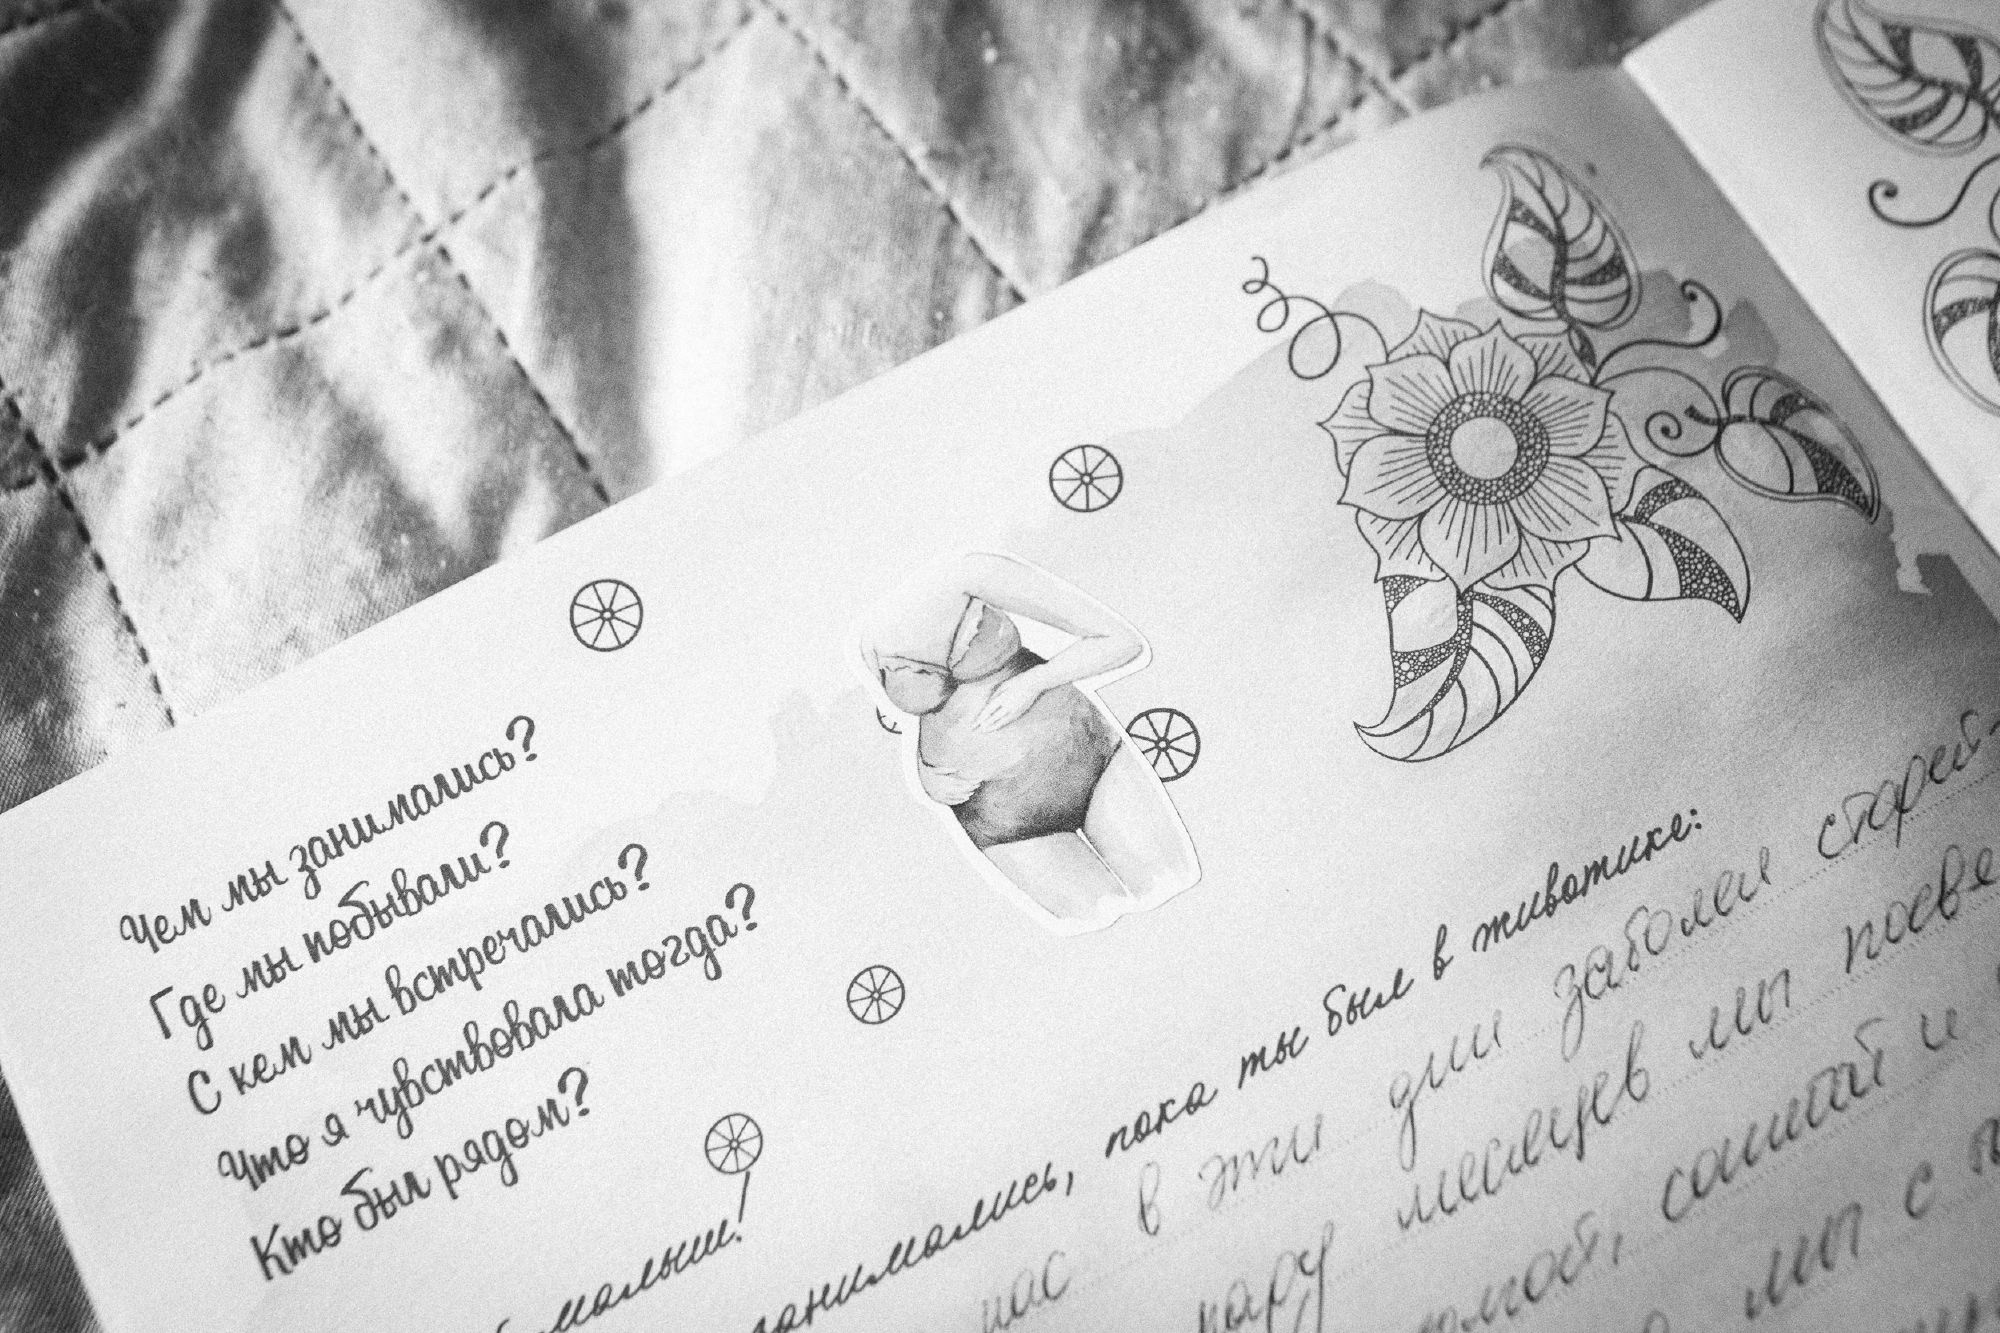 Чем мы занимались?
Где мы побывали?
С кем мы встречались?
Что я чувствовала тогда?
Кто был рядом?
малыш!
занимались, пока ты был в животике:
нас в эти дни заболел старей-
пару месяцев мы
и
мы с